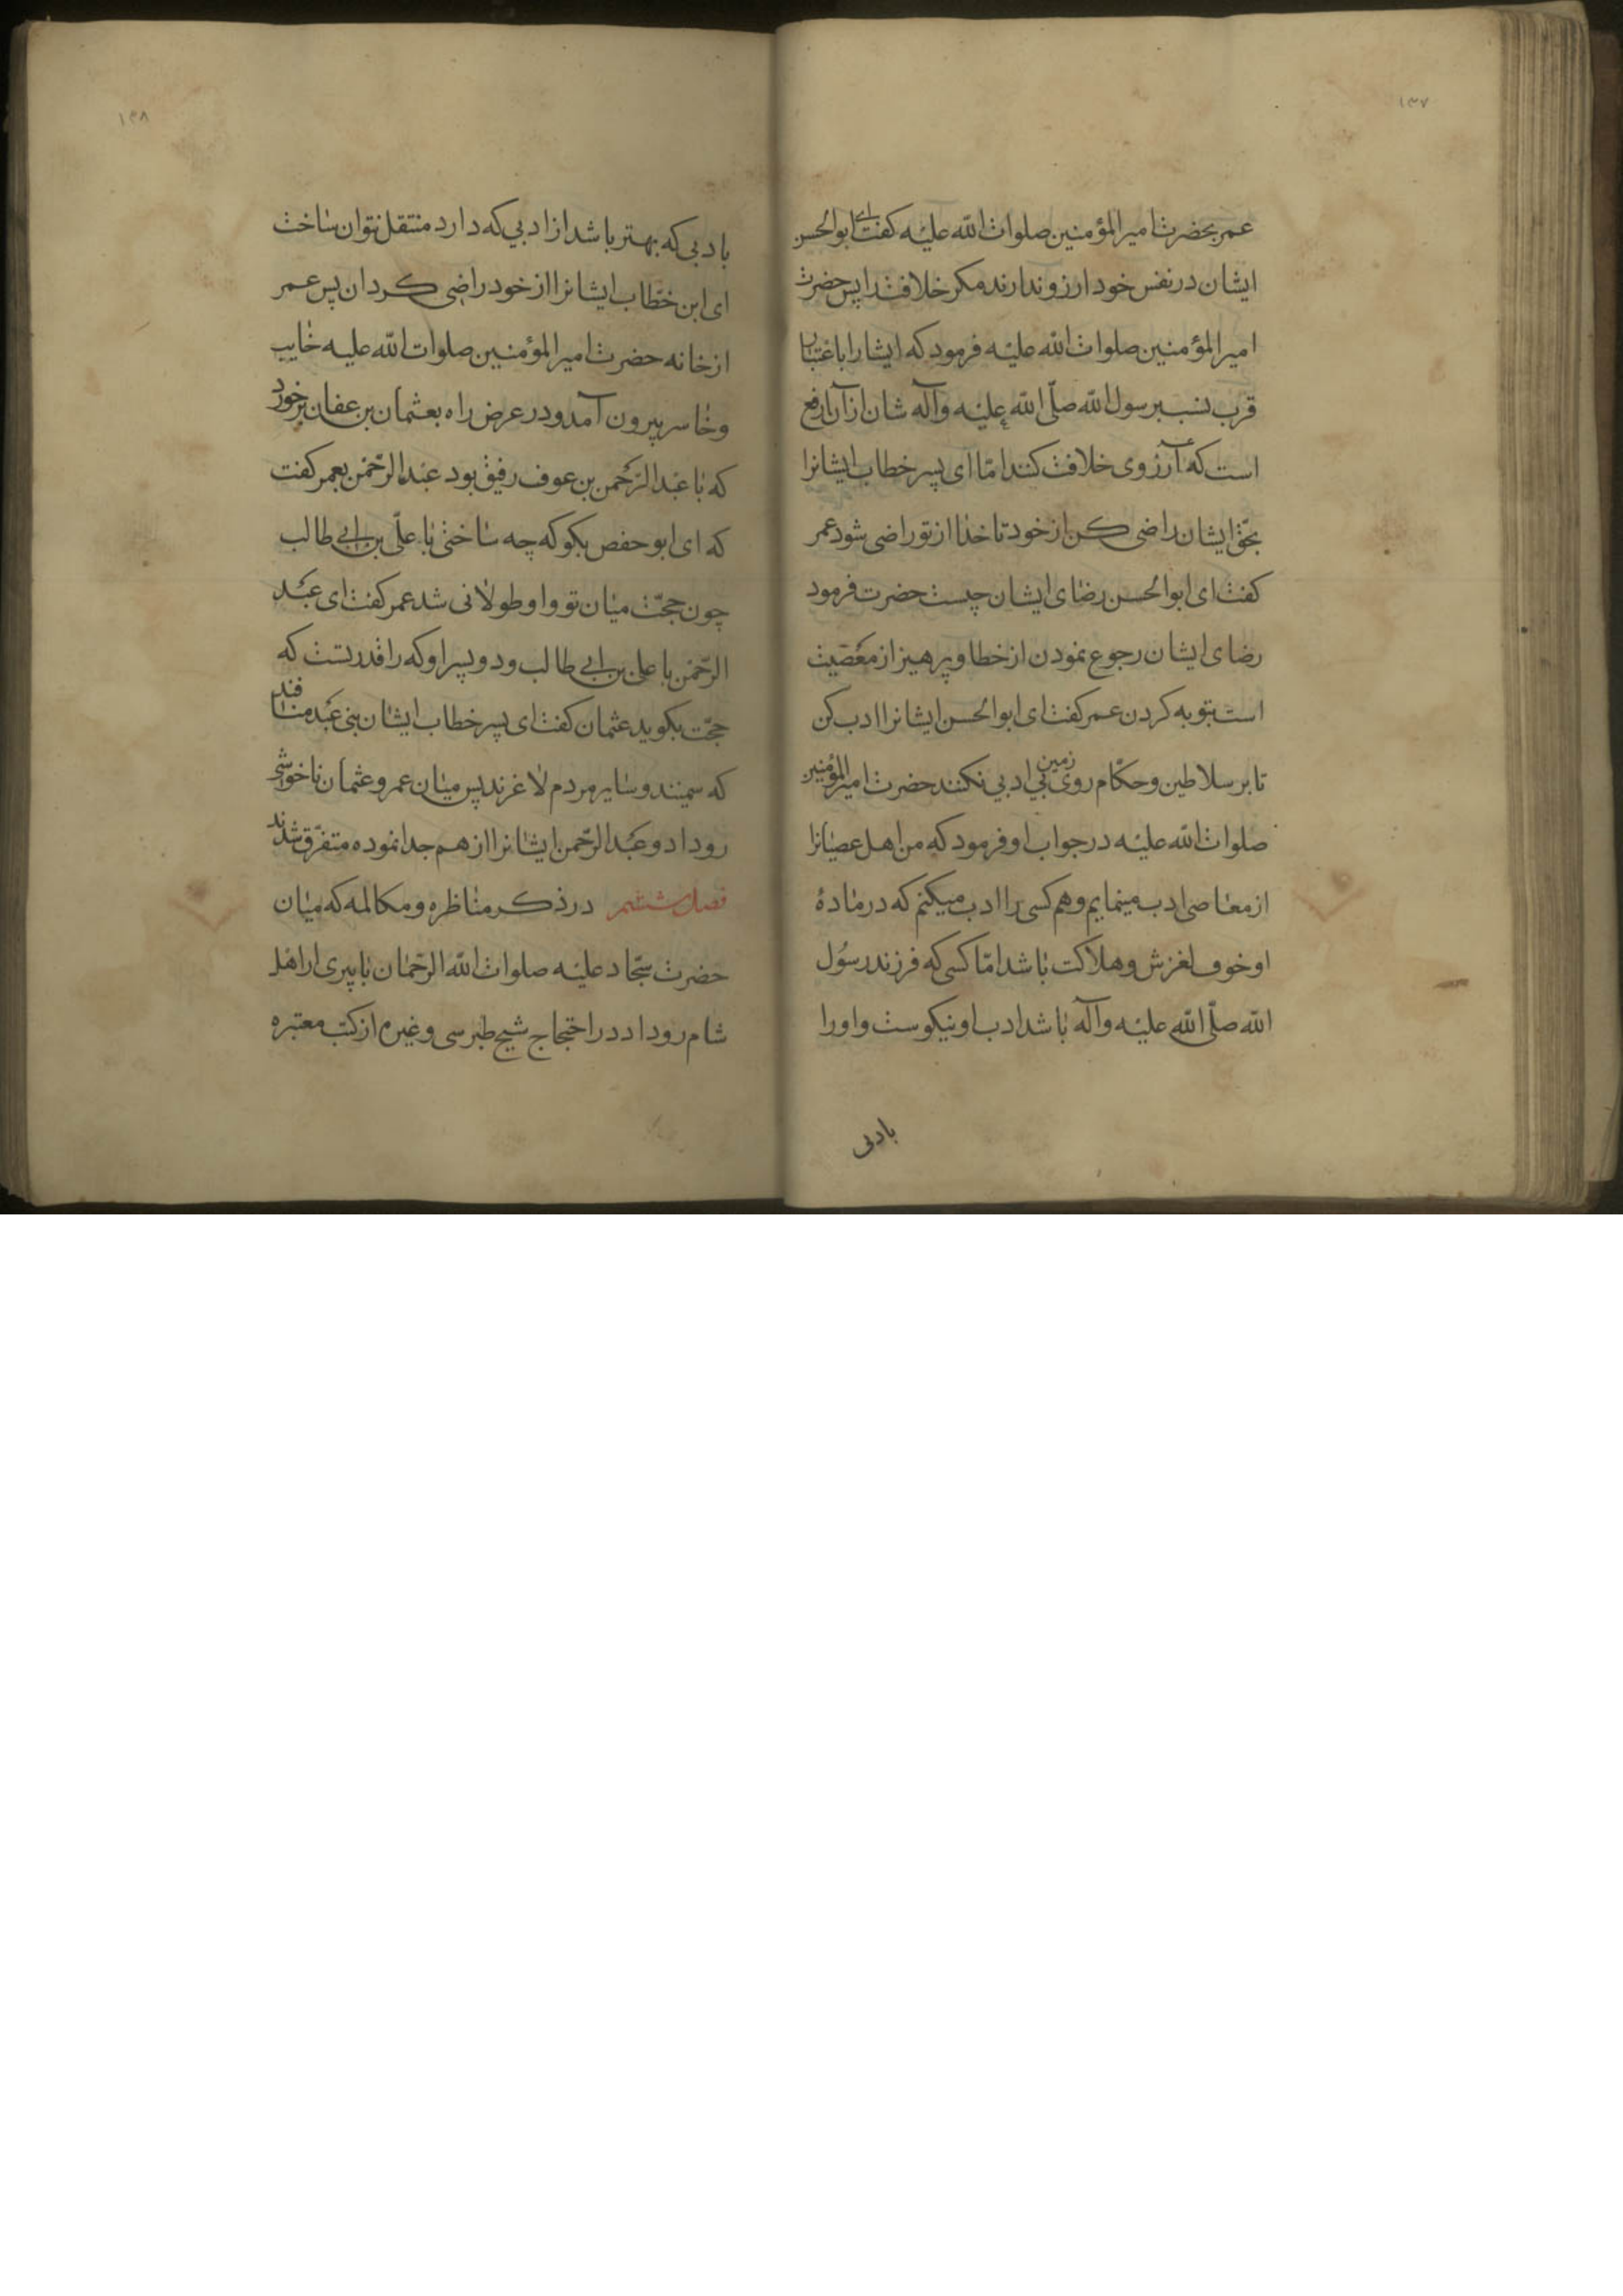 ۱۳۷
عمر بحضرت امیر المؤمنین صلوات الله علیه کفت ای ابو الحسن
ایشان در نفس خود ارزو ندارند مکر خلافت را پس حضرت
امیر المؤمنین صلوات الله علیه فرمود که ایشانرا باعتبار
قرب نسب برسول الله صلّی الله علیه وآله شان از آن ارفع
است که آرزوی خلافت کنند امّا ای پسر خطاب ایشانرا
بحقّ ایشان راضی کن از خود تا خدا از تو راضی شود عمر
کفت ای ابو الحسن رضای ایشان چیست حضرت فرمود
رضای ایشان رجوع نمودن از خطا و پرهیز از معصیت
است بتوبه کردن عمر کفت ای ابو الحسن ایشانرا ادب کن
تا بر سلاطین و حکّام روی زمین بی ادبی نکنند حضرت امیر المؤمنین
صلوات الله علیه در جواب او فرمود که من اهل عصیانرا
از معاصی ادب مینمایم و هم کسی را ادب میکنم که در مادهٔ
او خوف لغزش و هلاکت باشد امّا کسی که فرزند رسول
الله صلّی الله علیه وآله باشد ادب او نیکوست و او را
بادبی
۱۳۸
بادبی که بهتر باشد از ادبی که دارد منتقل نتوان ساخت
ای ابن خطّاب ایشانرا از خود راضی کردان پس عمر
از خانه حضرت امیر المؤمنین صلوات الله علیه خایب
و خاسر بیرون آمد و در عرض راه بعثمان بن عفان برخورد
که با عبد الرّحمن بن عوف رفیق بود عبد الرّحمن بعمر کفت
که ای ابو حفص بکو که چه ساختی با علّی بن ابی طالب
چون حجّت میان تو و او طولانی شد عمر کفت ای عبد
الرّحمن با علی بن ابی طالب و دو پسر او که را قدرتست که
حجّت بکوید عثمان کفت ای پسر خطاب ایشان بنی عبد منافند
که سمینند و سایر مردم لاغرند پس میان عمر و عثمان ناخوشی
روداد و عبد الرّحمن ایشانرا از هم جدا نموده متفرّق شدند
فصل ششم در ذکر مناظره و مکالمه که میان
حضرت سجّاد علیه صلوات الله الرّحمان با پیری از اهل
شام روداد در احتجاج شیخ طبرسی و غیرم از کتب معتبره